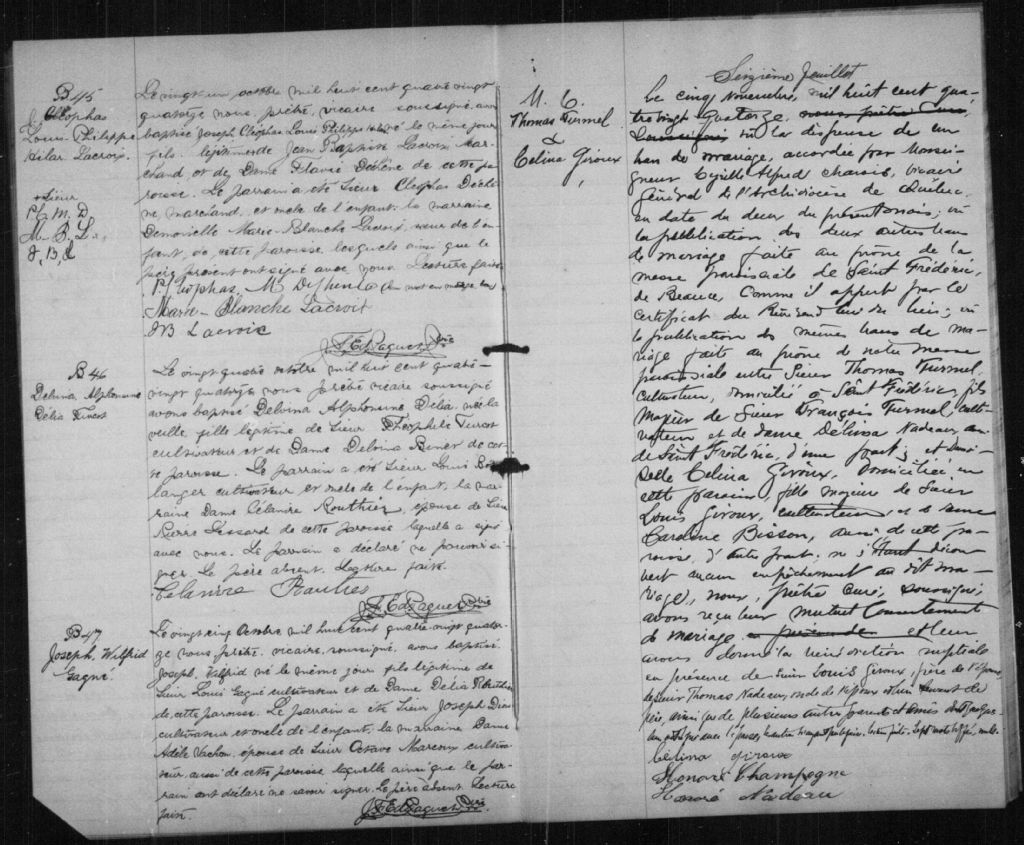 B 45
J. Cléophas
Louis Philippe
Hilar Lacroix.
Le vingt un octobre mil huit cent quatre vingt
quatorze nous prêtre, vicaire soussigné avons
baptisé Joseph Cléophas Louis Philippe né le même jour
fils légitime de Jean Baptiste Lacroix mar-
chand et de Dame Flavie Deblène de cette pa-
roisse. Le parrain a été Sieur Cléophas
marchand, et oncle de l'enfant; la marraine
Demoiselle Marie-Blanche Lacroix, sœur de l'en-
fant, de cette paroisse lesquels ainsi que le
père présent ont signé avec nous Lecture faite
+ Sieur
P. C. M. D
M. B. L.
J. B. L
Marie-Blanche Lacroix
JB Lacroix
J. F. Ed. Paquet Ptre
B 46
Delvina, Alphonsine
Délia Turcot
Le vingt quatre octobre mil huit cent quatre-
vingt quatorze nous prêtre vicaire soussigné
avons baptisé Delvina Alphonsine Délia, née la
veille, fille légitime de Sieur Théophile Turcot
cultivateur et de Dame Delvina Binet de cet-
te paroisse. Le parrain a été Sieur Louis Bou-
langer cultivateur et oncle de l'enfant, la mar-
raine Dame Célanire Routhier, épouse de Sieur
Pierre Lessard de cette paroisse laquelle a signé
avec nous. Le parrain a déclaré ne pouvoir si-
gner. Le père absent. Lecture faite.
Celanire Routies
J. F. Ed. Paquet Ptre
B 47
Joseph, Wilfrid
Gagné
Le vingt cinq Octobre mil huit cent quatre vingt quator-
ze nous prêtre, vicaire, soussigné, avons baptisé
Joseph, Wilfrid né le même jour fils légitime de
Sieur Louis Gagné cultivateur et de Dame Délia
de cette paroisse. Le parrain a été Sieur Joseph
cultivateur et oncle de l'enfant, la marraine Dame
Adèle Vachon, épouse de Sieur Octave Marcoux cultiva-
teur, aussi de cette paroisse laquelle ainsi que le par-
rain ont déclaré ne savoir signer. Le père absent Lecture
faite.
J. F. Ed. Paquet Ptre
M. 6.
Thomas Turmel
&
Celina Giroux
Seizième feuillet
Le cinq Novembre, mil huit cent qua-
tre vingt quatorze, nous prêtre curé,
soussigné vu la dispense de un
ban de mariage, accordée par Monsei-
gneur Cyrille Alfred Marois, vicaire
Général de l'Archidiocèse de Québec
en date du deux du présent mois; vu
la publication des deux autres bans
de mariage faite au prône de la
messe paroissiale de Saint Frédéric,
de Beauce, comme il appert par le
certificat du Révérend curé du lieu; vu
la publication des mêmes bans de ma-
riage faite au prône de notre messe
paroissiale entre Sieur Thomas Turmel,
cultivateur, domicilié à Saint Frédéric, fils
majeur de Sieur François Turmel, culti-
vateur et de dame Délima Nadeau, aussi
de Saint Frédéric, d'une part; et Demoi-
selle Celina Giroux, domiciliée en
cette paroisse, fille majeure de Sieur
Louis Giroux, cultivateur, et de dame
Caroline Bisson, aussi de cette pa-
roisse, d'autre part; ne s'étant décou-
vert aucun empêchement au dit ma-
riage, nous, prêtre curé, soussigné,
avons reçu leur mutuel consentement
de mariage et leur
avons donné la bénédiction nuptiale
en présence de Sieur Louis Giroux, père de l'épouse,
de Sieur Thomas Nadeau, oncle de l'époux
père, ainsi que de plusieurs autres parents et amis
Célina giroux
Honoré Champagne
Honoré Nadeau